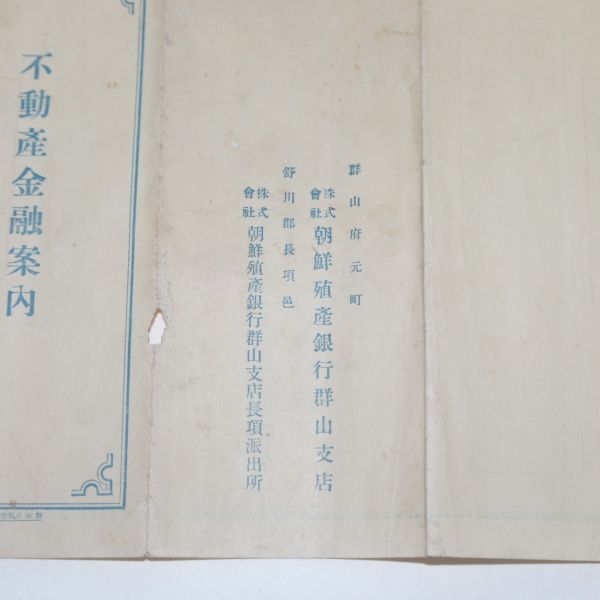 群山府元町
株式會社朝鮮殖產銀行群山支店
舒川郡長項邑
株式會社朝鮮殖產銀行群山支店長項派出所
不動產金融案內